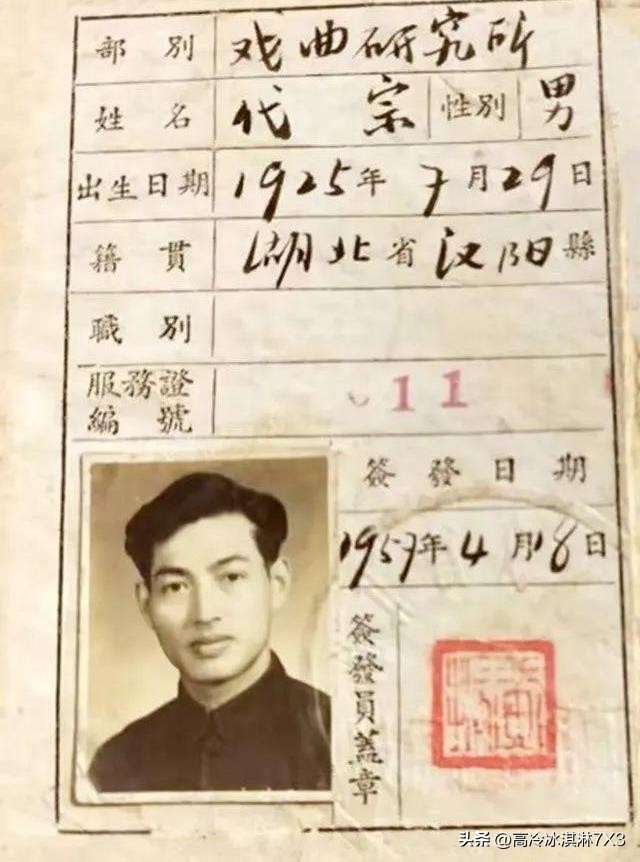 部别 戏曲研究所
姓名 代宗 性别 男
出生日期 1925年7月29日
籍贯 湖北省汉阳縣
職别
服務證
編號 011
簽發日期
1957年4月18日
簽發員蓋章
头条 @高冷冰淇淋7X3